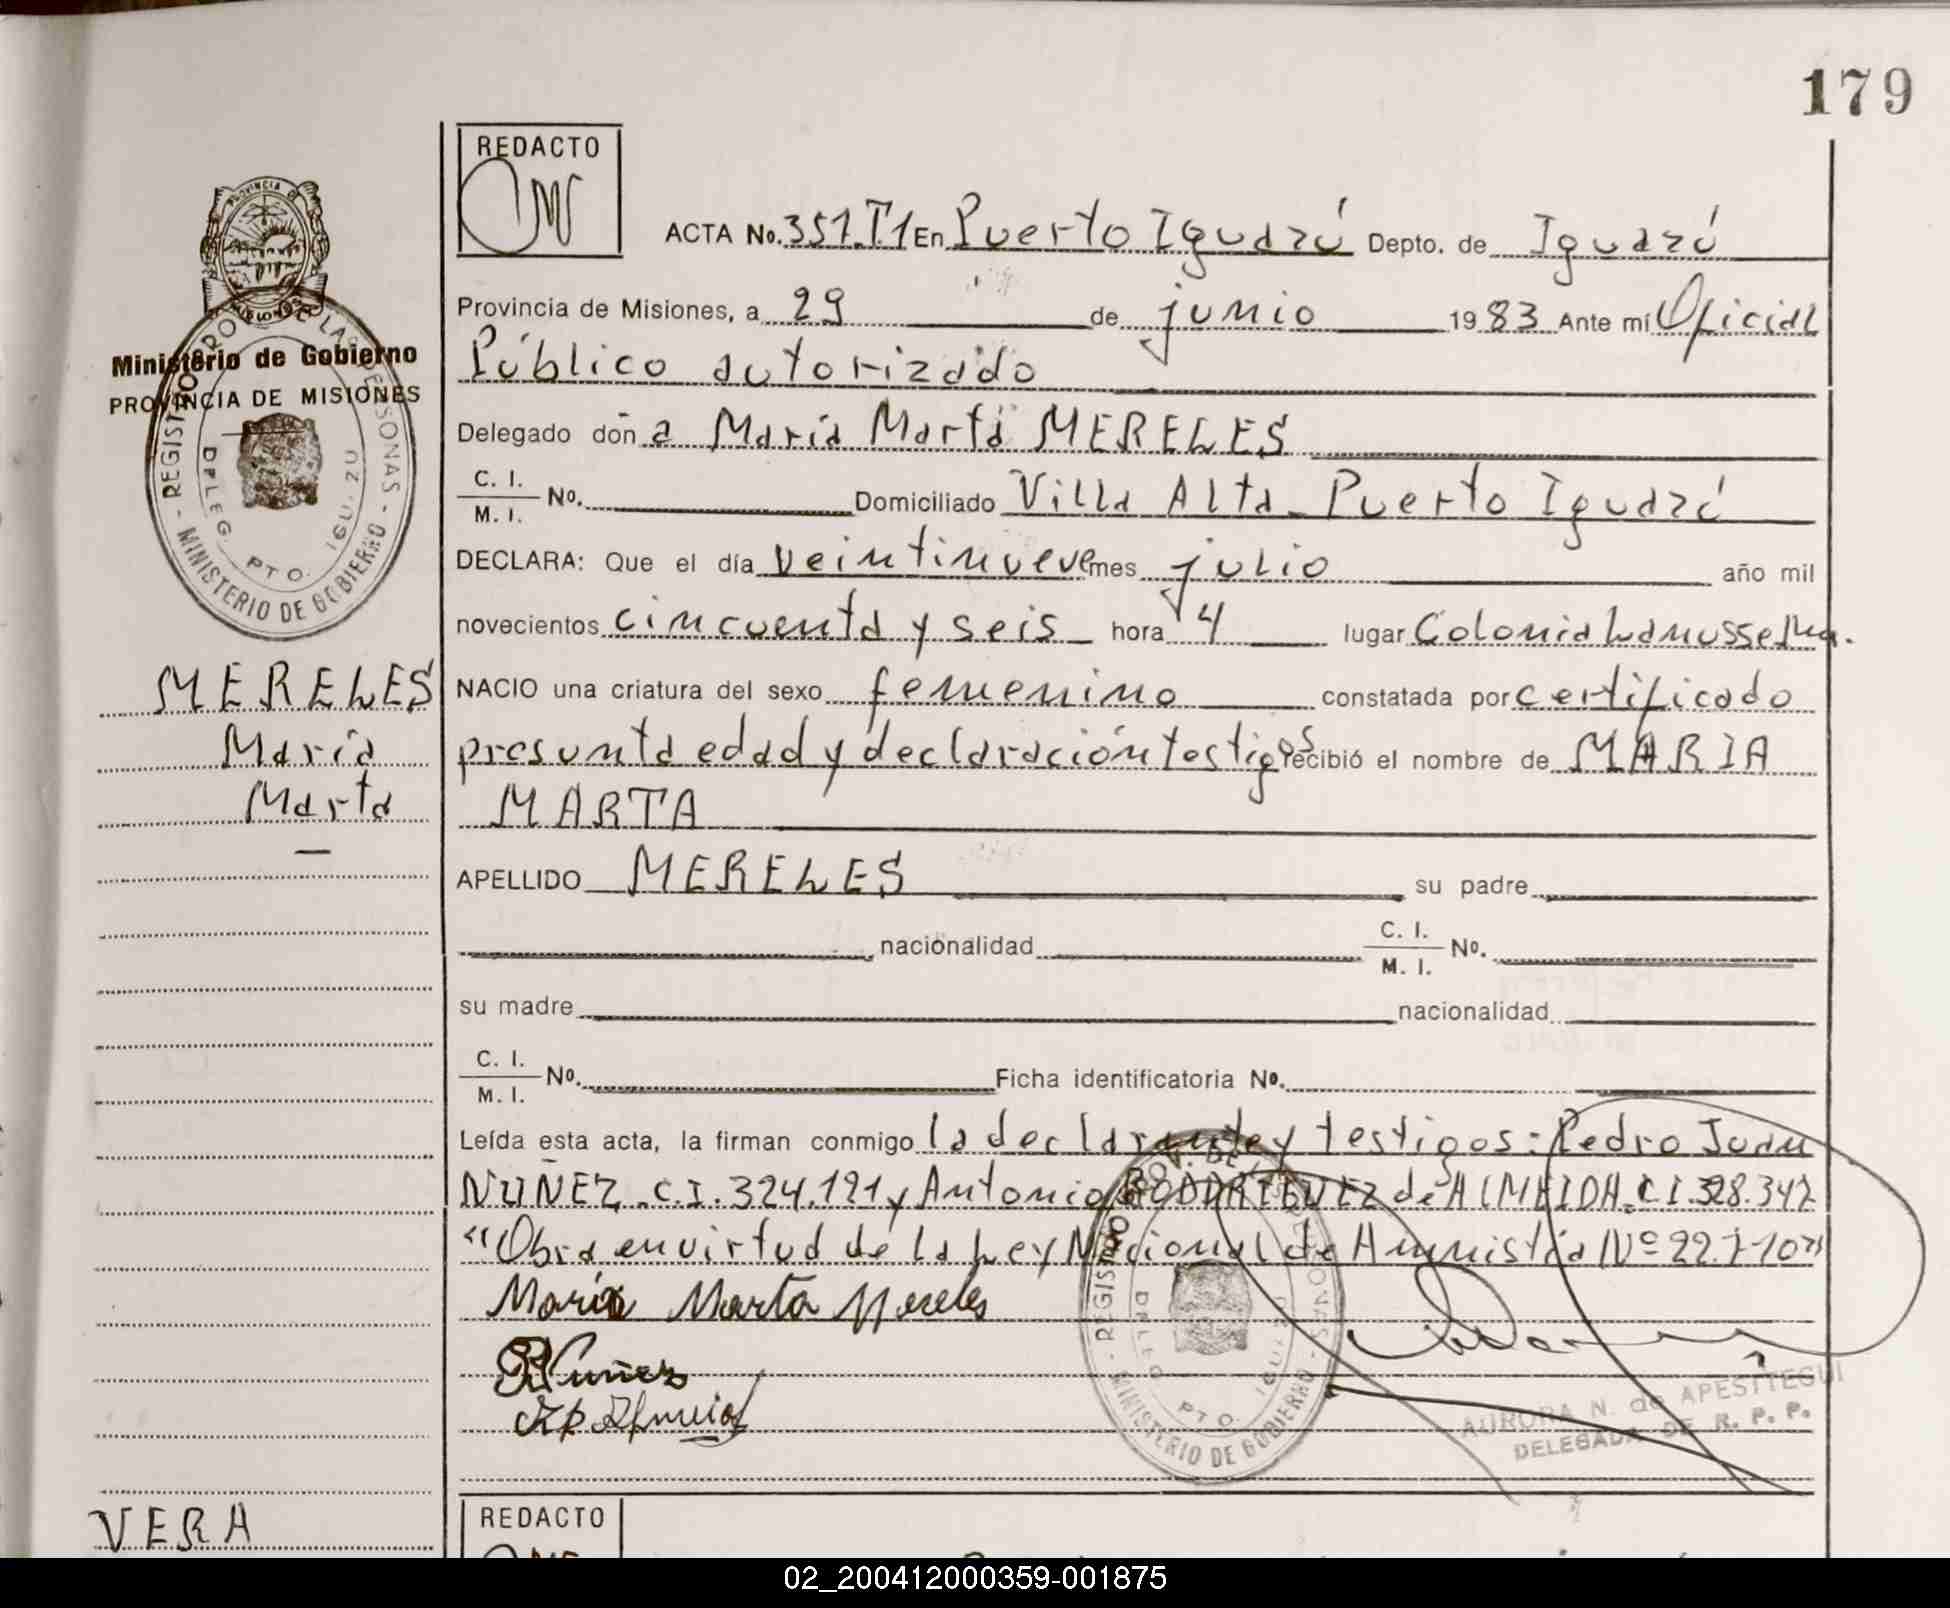 179
REDACTO
ACTA No. 351.T.1 En Puerto Iguazú Depto. de Iguazú
Provincia de Misiones, a 29 de junio 1983 Ante mí Oficial
Público autorizado
Ministerio de Gobierno
PROVINCIA DE MISIONES
Delegado don a María Marta MERELES
C. I.
M. I. No. Domiciliado Villa Alta - Puerto Iguazú
DECLARA: Que el día veintinueve mes julio año mil
novecientos cincuenta y seis hora 4 lugar Colonia Lanusse
MERELES
María
Marta
NACIO una criatura del sexo femenino constatada por certificado
presunta edad y declaración testigos recibió el nombre de MARIA
MARTA
APELLIDO MERELES su padre
nacionalidad C. I.
M. I. No.
su madre nacionalidad
C. I.
M. I. No. Ficha identificatoria No.
Leída esta acta, la firman conmigo la declarante y testigos: Pedro Juan
NUÑEZ. C.I. 324.121 y Antonio RODRIGUEZ de ALMEIDA. C.I. 328.347
"Obra en virtud de la Ley Nacional de Amnistía Nº
María Marta Mereles
Nuñez
REGISTRO PROV. DE LAS PERSONAS - MINISTERIO DE GOBIERNO
DELEG. PTO. IGU.
AURORA N. de APESTTEGUI
DELEGADA DE R. P. P.
VERA
REDACTO
02_200412000359-001875